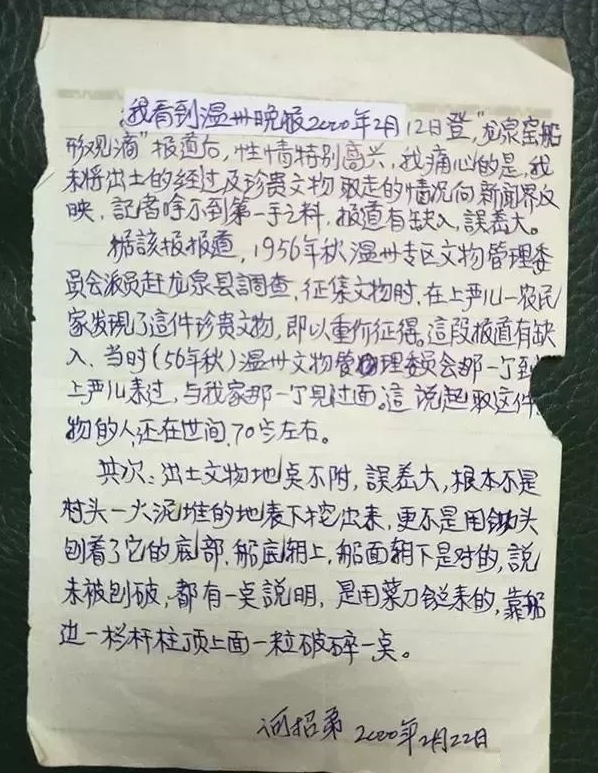 我看到温州晚报2000年2月12日登"龙泉窑船
形观滴"报道后，性情特别高兴，我痛心的是，我
未将出土的经过及珍贵文物取走的情况向新闻界反
映，記者呼不到第一手之料，报道有缺入，誤差大。
据該报报道，1956年秋温州专区文物管理委
员会派员赶龙泉县調查，征集文物时，在上严儿一农民
家发現了這件珍贵文物，即以重价征得。這段报道有缺
入，当时（56年秋）温州文物管理委员会那一丁到
上严儿来过，与我家那一丁見过面。這说起取这件
物的人还在世间，70岁左右。
其次：出土文物地奌不附，誤差大，根本不是
村头一大泥堆的地表下挖出来，更不是用锄头
刨着了它的底部，船底朝上，船面朝下是对的，説
未被刨破，都有一奌説明，是用菜刀锐来的，靠船
边一栏杆柱顶上面一粒破碎一奌。
招弟 2000年2月22日